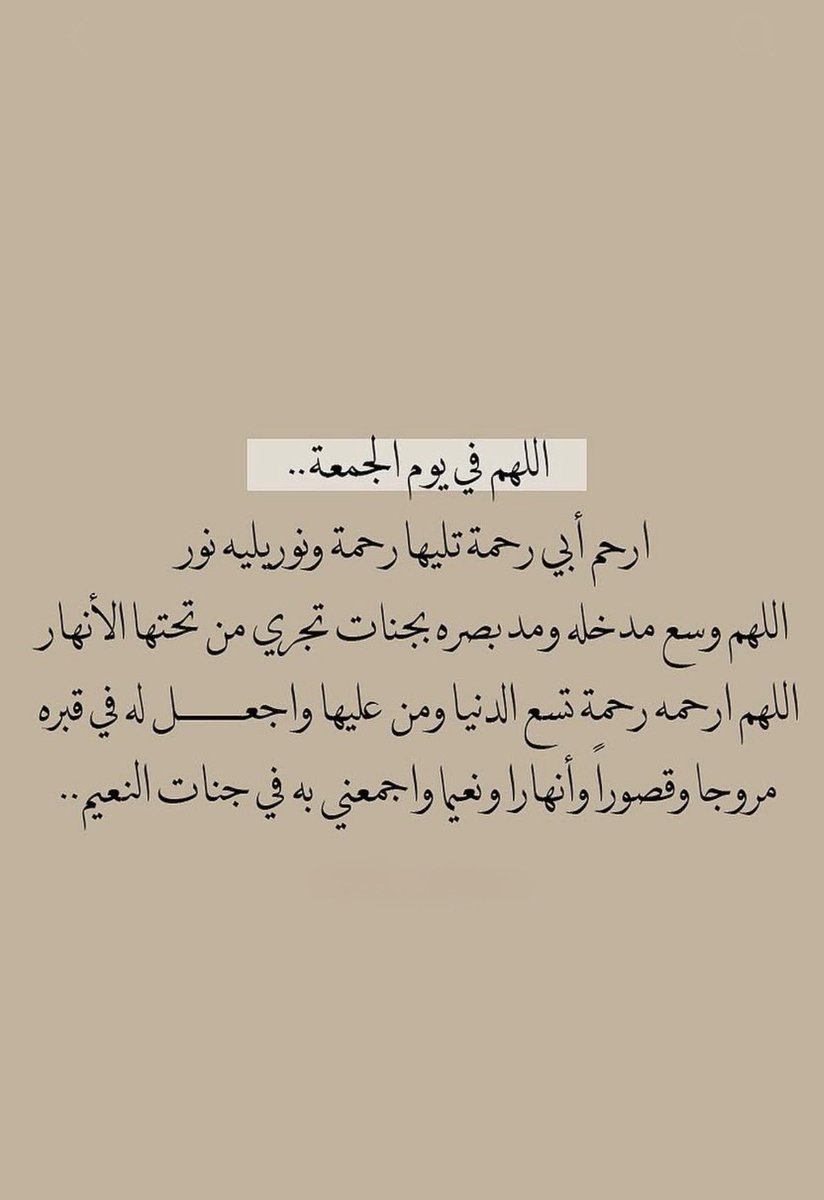 اللهم في يوم الجمعة..
ارحم أبي رحمة تليها رحمة ونور يليه نور
اللهم وسع مدخله ومد بصره بجنات تجري من تحتها الأنهار
اللهم ارحمه رحمة تسع الدنيا ومن عليها واجعـــــل له في قبره
مروجا وقصوراً وأنهارا ونعيما واجمعني به في جنات النعيم..